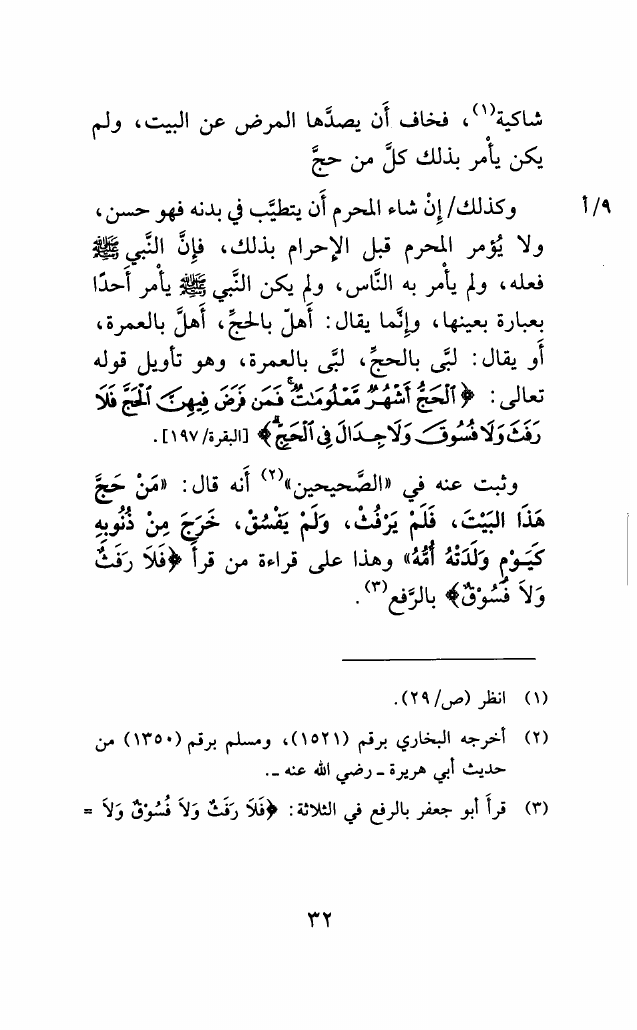 شاكية(١)، فخاف أن يصدَّها المرض عن البيت، ولم
يكن يأمر بذلك كلَّ من حجَّ
٩/أ
وكذلك/ إنْ شاء المحرم أن يتطيَّب في بدنه فهو حسن،
ولا يُؤمر المحرم قبل الإحرام بذلك، فإنَّ النَّبي ﷺ
فعله، ولم يأمر به النَّاس، ولم يكن النَّبي ﷺ يأمر أحدًا
بعبارة بعينها، وإنَّما يقال: أهلّ بالحجِّ، أهلَّ بالعمرة،
أو يقال: لبَّى بالحجِّ، لبَّى بالعمرة، وهو تأويل قوله
تعالى: ﴿ٱلْحَجُّ أَشْهُرٌ مَّعْلُومَٰتٌۚ فَمَن فَرَضَ فِيهِنَّ ٱلْحَجَّ فَلَا
رَفَثَ وَلَا فُسُوقَ وَلَا جِدَالَ فِى ٱلْحَجِّۗ﴾ [البقرة/١٩٧].
وثبت عنه في «الصَّحيحين»(٢) أنه قال: «مَنْ حَجَّ
هَذَا البَيْتَ، فَلَمْ يَرْفُثْ، وَلَمْ يَفْسُقْ، خَرَجَ مِنْ ذُنُوبِهِ
كَيَوْمِ وَلَدَتْهُ أُمُّهُ» وهذا على قراءة من قرأ ﴿فَلاَ رَفَثٌ
وَلاَ فُسُوْقٌ﴾ بالرَّفع(٣).
(١) انظر (ص/٢٩).
(٢) أخرجه البخاري برقم (١٥٢١)، ومسلم برقم (١٣٥٠) من
حديث أبي هريرة ـ رضي الله عنه ـ.
(٣) قرأ أبو جعفر بالرفع في الثلاثة: ﴿فَلاَ رَفَثٌ وَلاَ فُسُوْقٌ وَلاَ =
٣٢